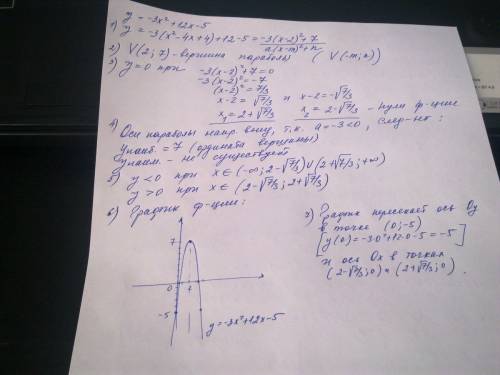 1) y = -3x²+12x-5
y = -3(x²-4x+4)+12-5 = -3(x-2)²+7
a(x-m)²+n
2) V(2; 7) - вершина параболы ( V(-m; n))
3) y=0 при -3(x-2)²+7=0
-3(x-2)² = -7
(x-2)² = 7/3
x-2 = √7/3 и x-2 = -√7/3
x₁ = 2+√7/3 x₂ = 2-√7/3 - нули ф-ции
4) Оси параболы напр. вниз, т.к. a=-3<0, след-но:
yнаиб. = 7 (ордината вершины)
yнаим. - не существует
5) y<0 при x∈(-∞; 2-√7/3)∪(2+√7/3; +∞)
y>0 при x∈(2-√7/3; 2+√7/3)
6) График ф-ции:
7
0
-5
y=-3x²+12x-5
7) График пересекает ось Oy
в точке (0; -5)
[y(0)=-3·0²+12·0-5=-5]
и ось Ox в точках
(2-√7/3; 0) и (2+√7/3; 0).